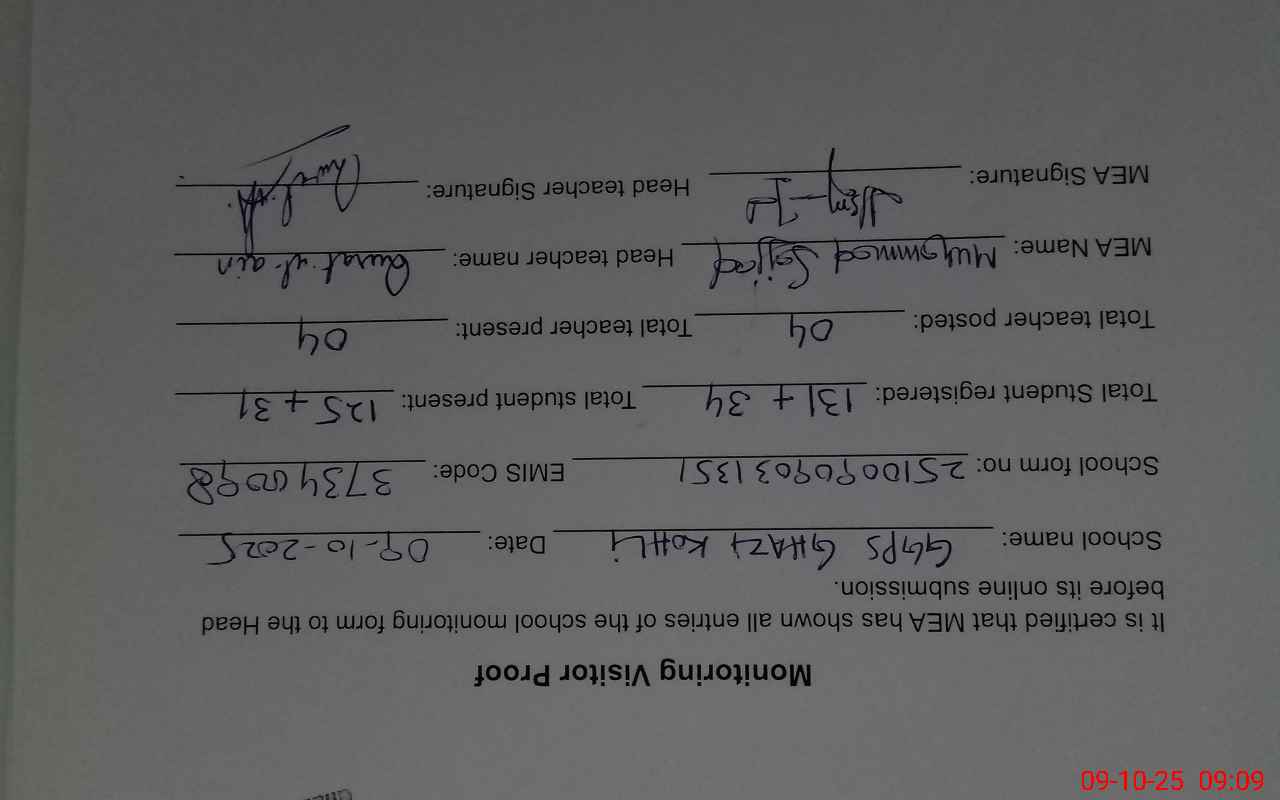 Monitoring Visitor Proof
It is certified that MEA has shown all entries of the school monitoring form to the Head
before its online submission.
School name: GGPS GHAZI KOHLI Date: 09-10-2025
School form no: 25100909031351 EMIS Code: 37340098
Total Student registered: 131 + 34 Total student present: 125 + 31
Total teacher posted: 04 Total teacher present: 04
MEA Name: Muhammad Sajjad Head teacher name: Qurat-ul-ain
MEA Signature: Head teacher Signature:
09-10-25 09:09